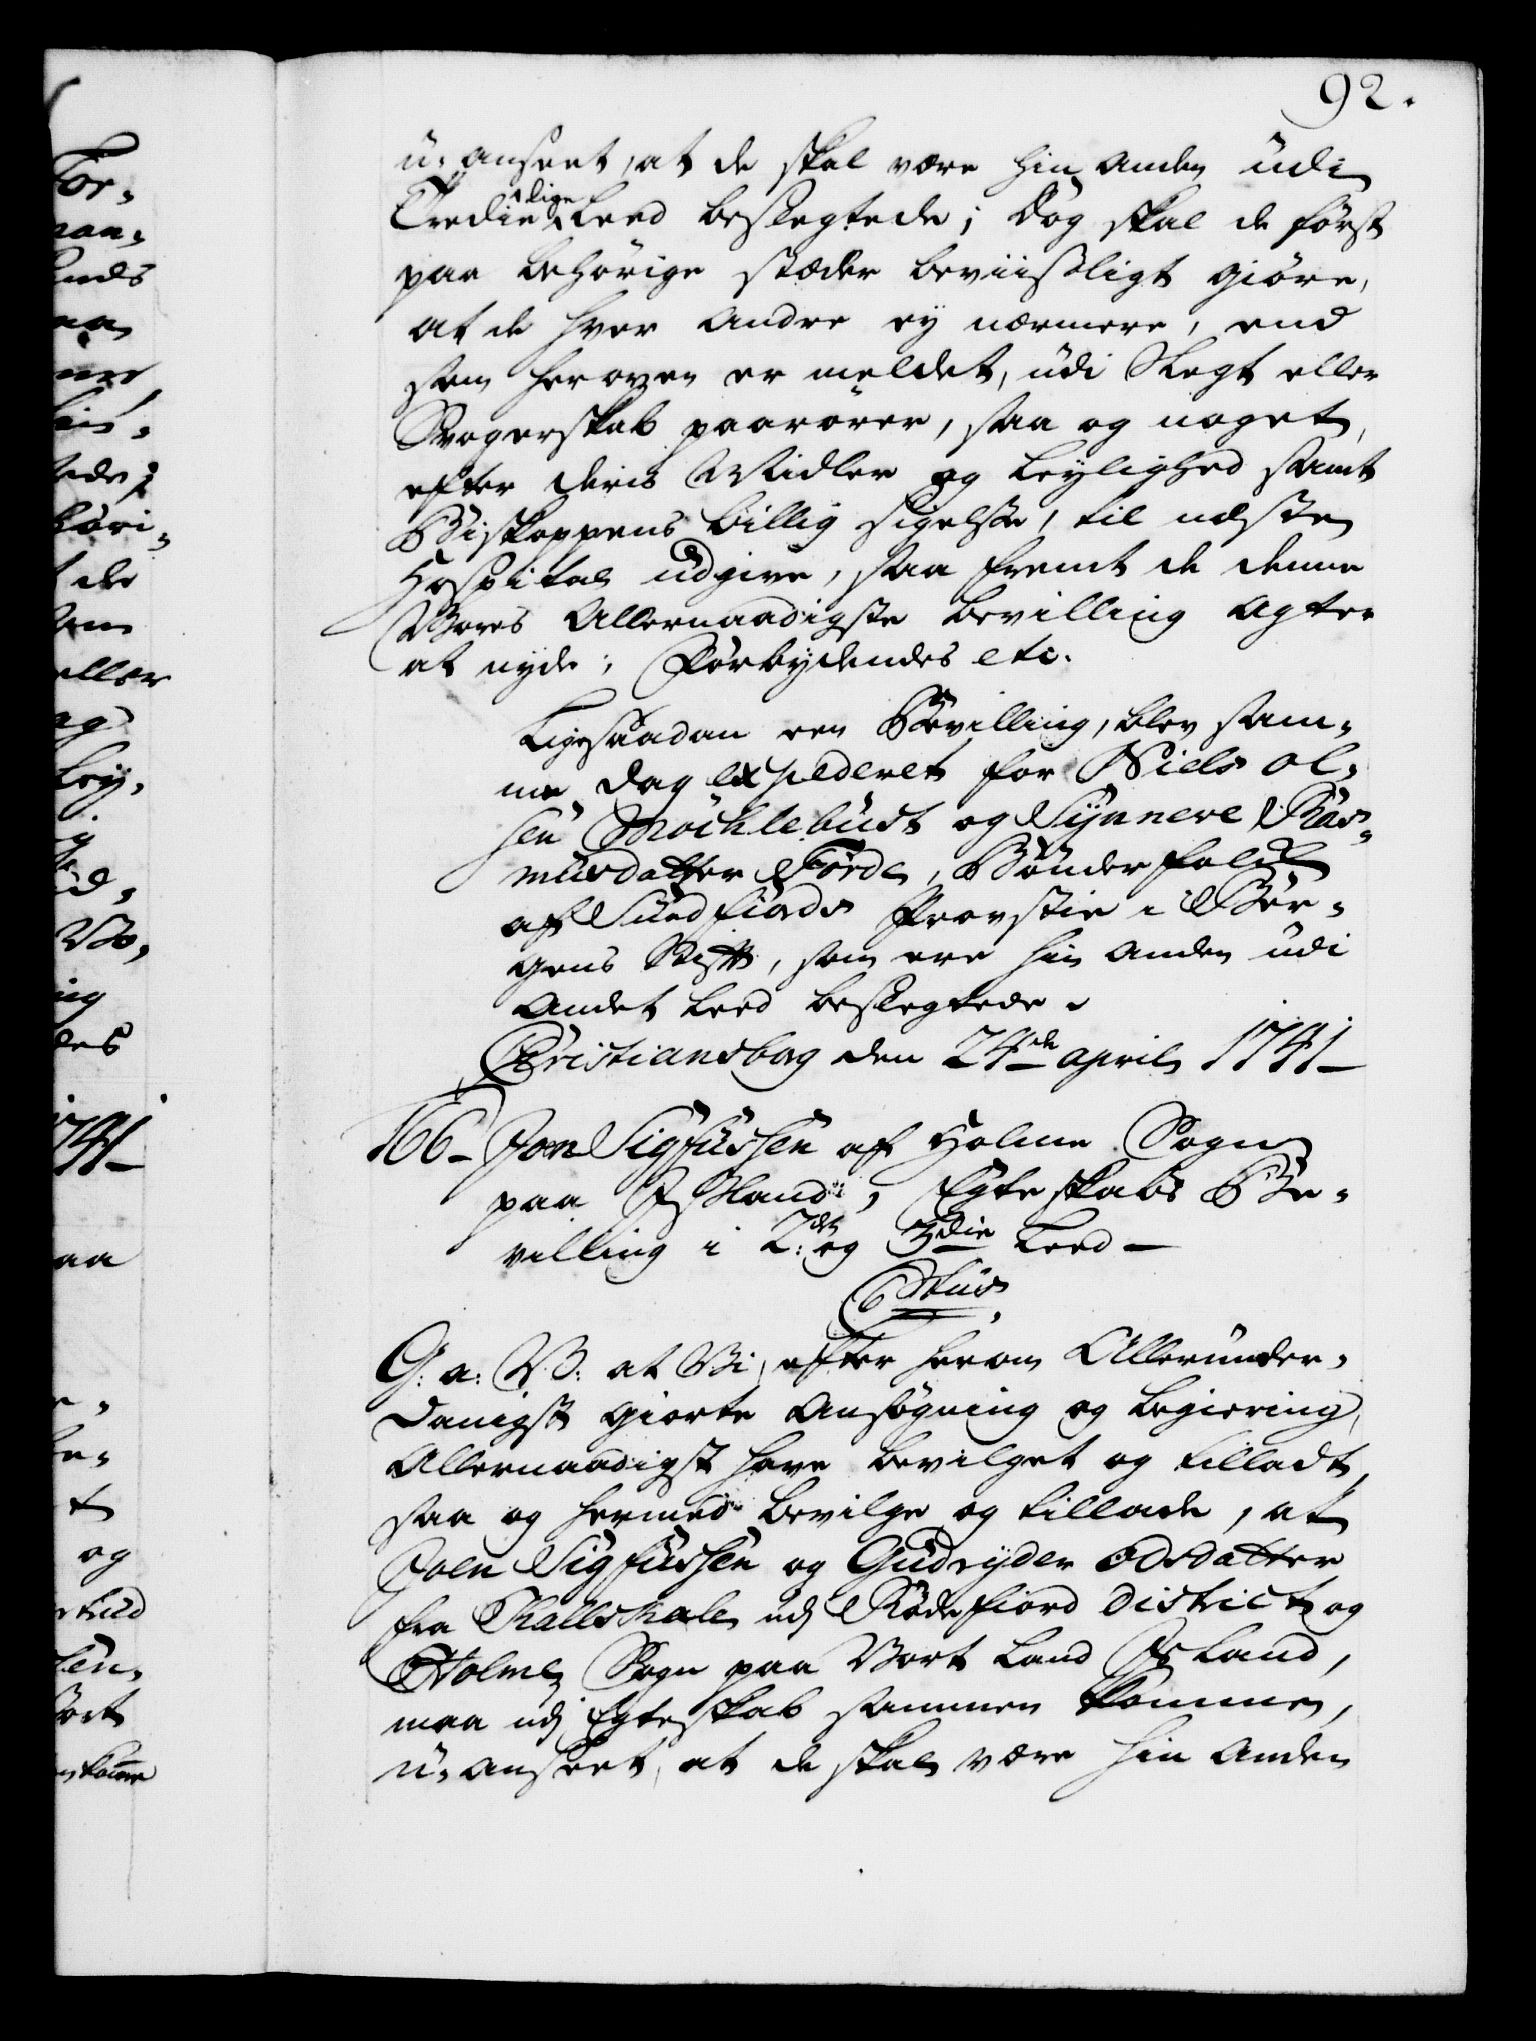 92.
u-anseet, at de skal være hin anden udi
Tredie lige Leed beslegtede; Dog skal de først
paa behørige stæder beviisligt giøre,
at de hver andre ey nærmere, end
som heroven er meldet, udi Slegt eller
Svogerskab paarører, saa og noget,
efter deris Midler og leylighed samt
Biskoppens billig sigelse, til næste
Hospital udgive, saa fremt de denne
Vores Allernaadigste bevilling agter
at nyde; Forbydendes etc.
Ligesaadan een Bevilling, blev sam-
me dag expederet for Niels Ol-
sen Møchlebust og Synneve Ras-
musdatter Førde, Bønderfolch
af Sundfiords Provstie i Ber-
gens Stift, som ere hin anden udi
Andet Leed beslegtede.
Christiansborg den 24de april 1741
166 Joen Sigfussen af Holme Sogn
paa Iisland, Egteskabs Be-
villing i 2det og 3die Leed
C 6tus
G: a: V: at Vi, efter herom Allerunder-
danigst giorte Ansøgning og begiering,
Allernaadigst have bevilget og tilladt,
saa og hermed bevilge og tillade, at
Joen Sigfussen og Gudryder Odsdatter
fra Kallskale udj Rødefiord District og
Holme Sogn paa Vort Land Iisland,
maa udj Egteskab sammen komme,
u-anseet, at de skal være hin anden